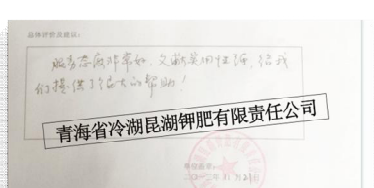 总体评价及建议:
服务态度非常好,文献实用性强,给我
们提供了很大的帮助!
青海省冷湖昆湖钾肥有限责任公司
单位盖章: